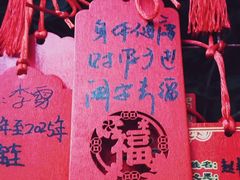 身体健康
财源广进
阖家幸福
福
李雪
年至2025年